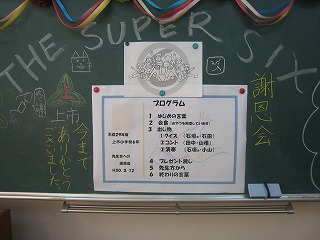 THE SUPER SIX
謝恩会
上市
今まで
ありがとう
ございました
プログラム
1 はじめの言葉
2 会食
3 出し物
①クイズ
②コント
③演奏
4 プレゼント渡し
5 先生方から
6 終わりの言葉
上市小学校6年
先生方への
謝恩会
H20.3.12